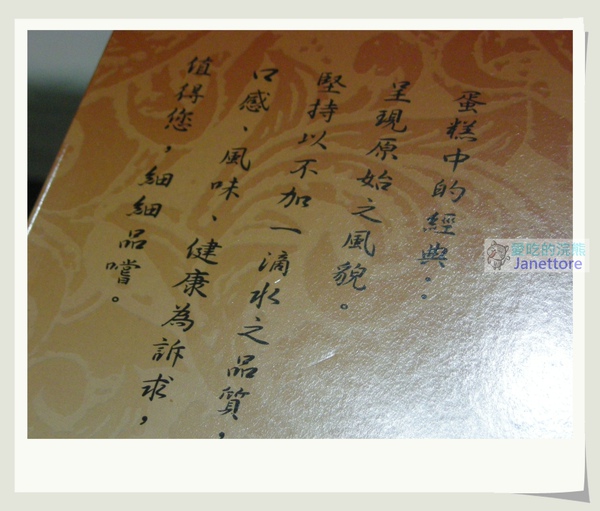 蛋糕中的經典..
呈現原始之風貌。
堅持以不加一滴水之品質，
口感、風味、健康為訴求，
值得您，細細品嚐。
愛吃的浣熊
Janettore